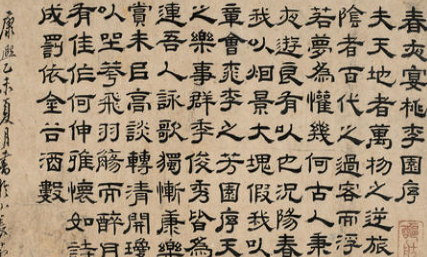 春夜宴桃李園序
夫天地者萬物之逆旅
陰者百代之過客而浮
若夢為懽幾何古人秉
夜遊良有以也况陽春
我以烟景大塊假我以
章會桃李之芳園序天
之樂事群季俊秀皆為
連吾人詠歌獨慚康樂
賞未已高談轉清開瓊
以坐華飛羽觴而醉月
有佳作何伸雅懷如詩
成罰依金谷酒數
康熙乙未夏月書於小長